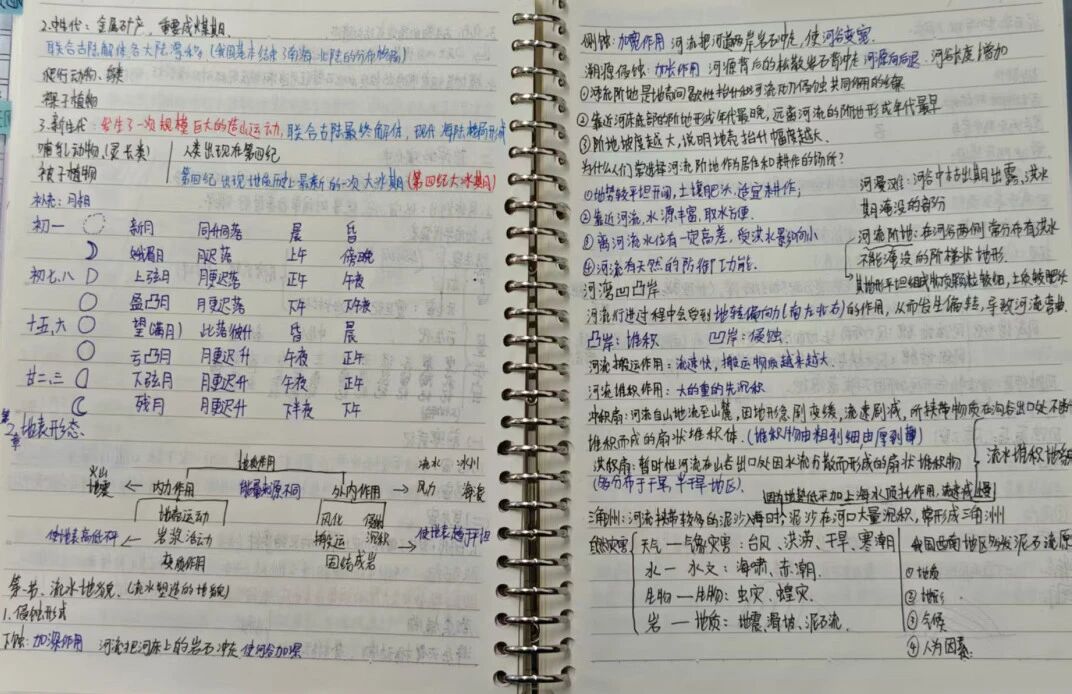 2.中生代：金属矿产，重要成煤期.
联合古陆解体各大陆漂移。(我国基本结束了南海北陆的分布格局)
爬行动物、鸟类
裸子植物
3.新生代：发生了一次规模巨大的造山运动，联合古陆最终解体，现代海陆格局形成
哺乳动物(灵长类) 人类出现在第四纪
被子植物 第四纪出现地质历史上最新的一次大冰期(第四纪大冰期)
补充：月相
初一 新月 同升同落 晨 昏
蛾眉月 月迟落 上午 傍晚
初七、八 上弦月 月更迟落 正午 午夜
盈凸月 月更迟落 下午
十五、六 望(满月) 此落彼升 昏 晨
亏凸月 月更迟升 午夜 正午
廿二、三 下弦月 月更迟升 午夜 正午
残月 月更迟升 下半夜 下午
第2章 地表形态
地质作用 流水 冰川
火山 地震 ← 内力作用 能量来源不同 外力作用 → 风力 海浪
地壳运动 风化 侵蚀
使地表高低不平 ← 岩浆活动 搬运 沉积 → 使地表趋于平坦
变质作用 固结成岩
第一节、流水地貌.(流水塑造的地貌)
1.侵蚀形式
下蚀：加深作用 河流把河床上的岩石冲走使河谷加深
侧蚀：加宽作用 河流把河道两岸岩石冲走，使河谷变宽.
溯源侵蚀：加长作用 河源背后的松散岩石背冲走 河源向后退，河谷长度增加
①河流阶地是地壳间歇性抬升和河流下切侵蚀共同作用的结果
②靠近河床底部的阶地形成年代最晚，远离河流的阶地形成年代最早
③阶地坡度越大，说明地壳抬升幅度越大.
为什么人们常选择河流阶地作为居住和耕作的场所？
①地势较平坦开阔，土壤肥沃，适宜耕作，
河漫滩：河谷中枯水期出露，洪水
期淹没的部分
②靠近河流，水源丰富，取水方便.
③离河流水位有一定高差，受洪水影响小
河流阶地：在河谷两侧常分布有洪水
不能淹没的阶梯状地形.
④河流有天然的防御工功能.
其地形平坦组成物质颗粒较细，土质较肥沃
河湾凹凸岸
河流行进过程中会受到地转偏向力(南左北右)的作用，从而发生偏转，导致河流弯曲.
凸岸：堆积 凹岸：侵蚀.
河流搬运作用：流速快，搬运物质越来越大.
河流堆积作用：大的重的先沉积
冲积扇：河流自山地流至山麓，因地形急剧变缓，流速剧减，所携带物质在沟谷出口处不断
堆积而成的扇状堆积体.(堆积物由粗到细由厚到薄)
洪积扇：暂时性河流在山谷出口处因水流分散而形成的扇状堆积物 流水堆积地貌
(多分布于干旱、半干旱地区).
因为地势低平加上海水顶托作用，流速减慢
三角洲：河流携带较多的泥沙入海时，泥沙在河口大量沉积，常形成三角洲
自然灾害 天气—气象灾害：台风、洪涝、干旱、寒潮 我国西南地区多发泥石流原
水—水文：海啸、赤潮. ①地质
生物—生物：虫灾、蝗灾. ②地形
岩—地质：地震、滑坡、泥石流. ③气候
④人为因素.